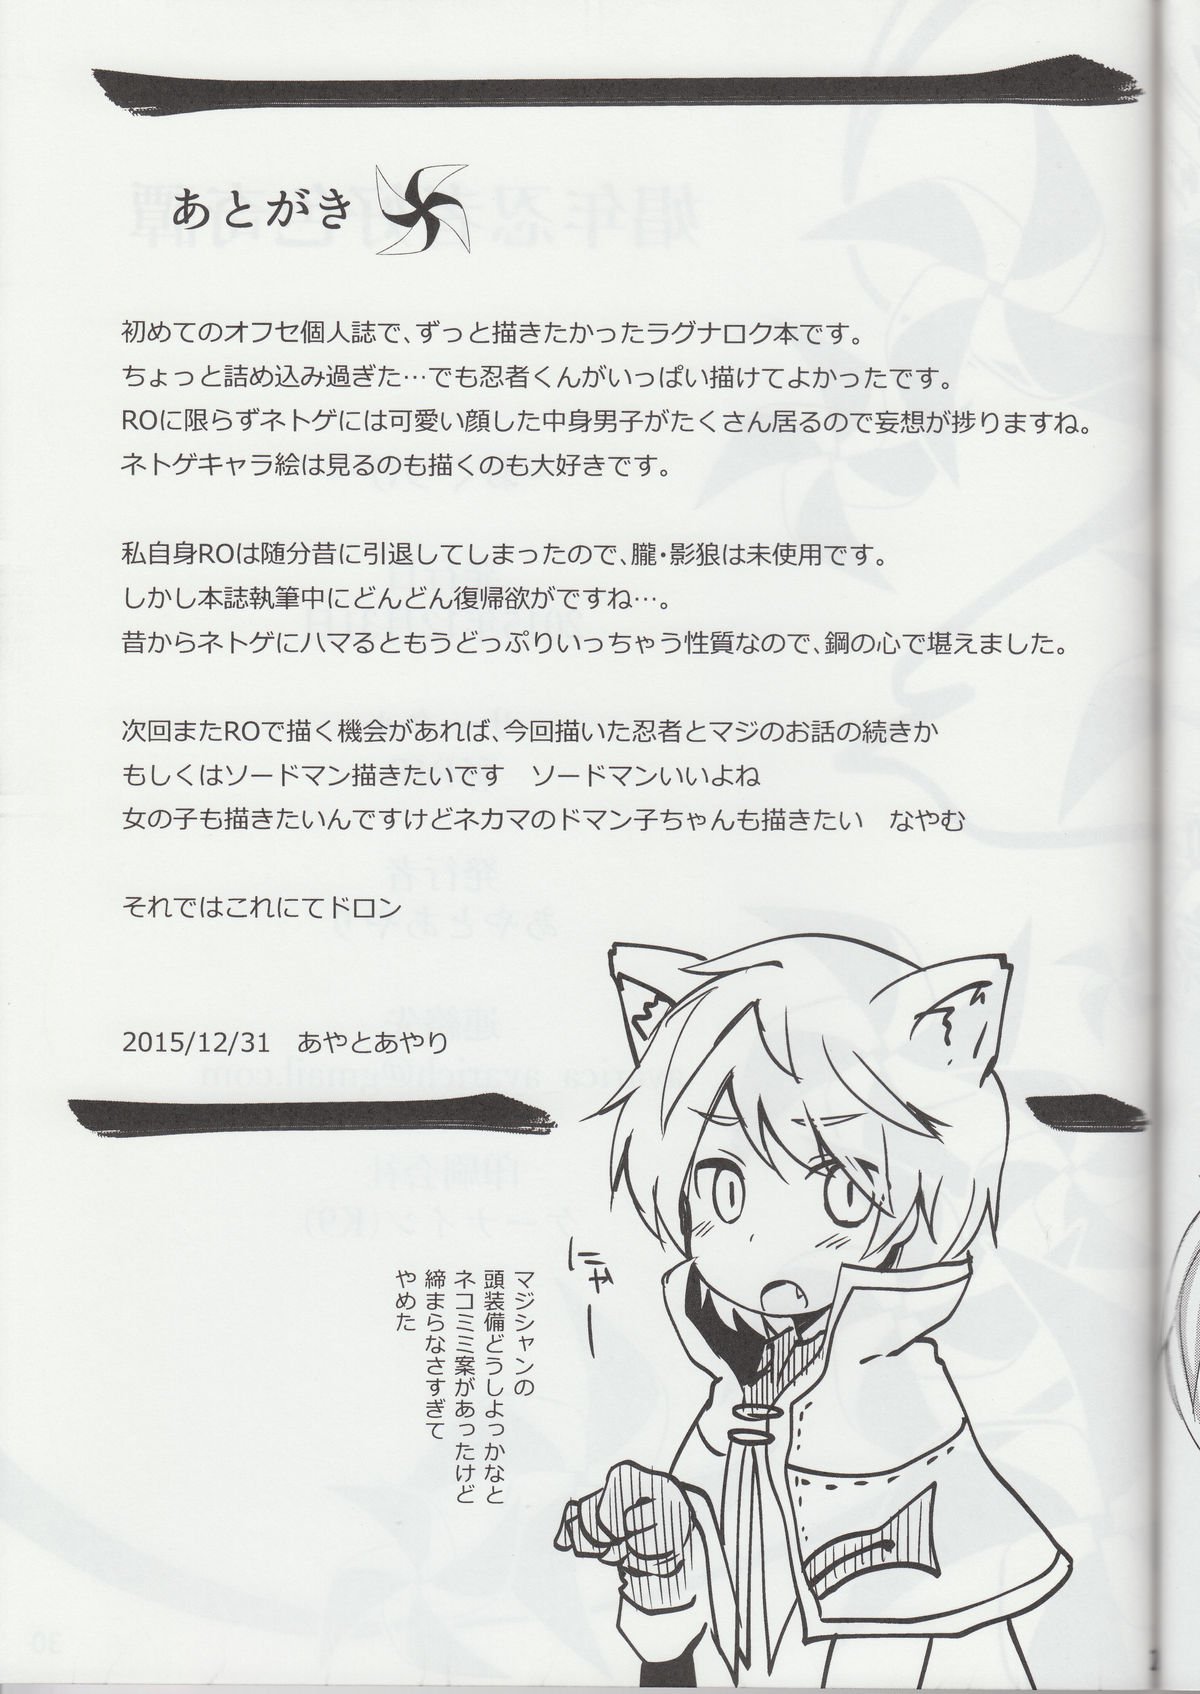 あとがき
初めてのオフセ個人誌で、ずっと描きたかったラグナロク本です。
ちょっと詰め込み過ぎた…でも忍者くんがいっぱい描けてよかったです。
ROに限らずネトゲには可愛い顔した中身男子がたくさん居るので妄想が捗りますね。
ネトゲキャラ絵は見るのも描くのも大好きです。
私自身ROは随分昔に引退してしまったので、朧・影狼は未使用です。
しかし本誌執筆中にどんどん復帰欲がですね…。
昔からネトゲにハマるともうどっぷりいっちゃう性質なので、鋼の心で堪えました。
次回またROで描く機会があれば、今回描いた忍者とマジのお話の続きか
もしくはソードマン描きたいです　ソードマンいいよね
女の子も描きたいんですけどネカマのドマン子ちゃんも描きたい　なやむ
それではこれにてドロン
2015/12/31　あやとあやり
にゃー
マジシャンの
頭装備どうしよっかなと
ネコミミ案があったけど
締まらなさすぎて
やめた